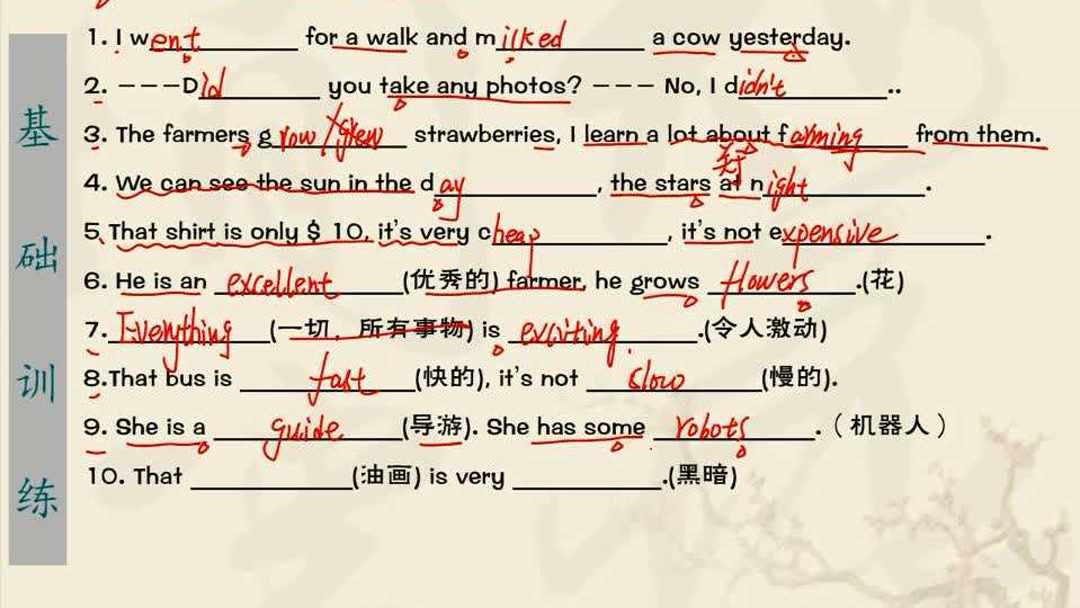 基础训练
1. I went for a walk and milked a cow yesterday.
2. ---Did you take any photos? --- No, I didn't..
3. The farmers grow/grew strawberries, I learn a lot about farming from them.
关于
4. We can see the sun in the day, the stars at night.
5. That shirt is only $ 10, it's very cheap, it's not expensive.
6. He is an excellent(优秀的) farmer, he grows flowers.(花)
7. Everything(一切，所有事物) is exciting.(令人激动)
8.That bus is fast(快的), it's not slow(慢的).
9. She is a guide(导游). She has some robots.（机器人）
10. That ____(油画) is very ____.(黑暗)